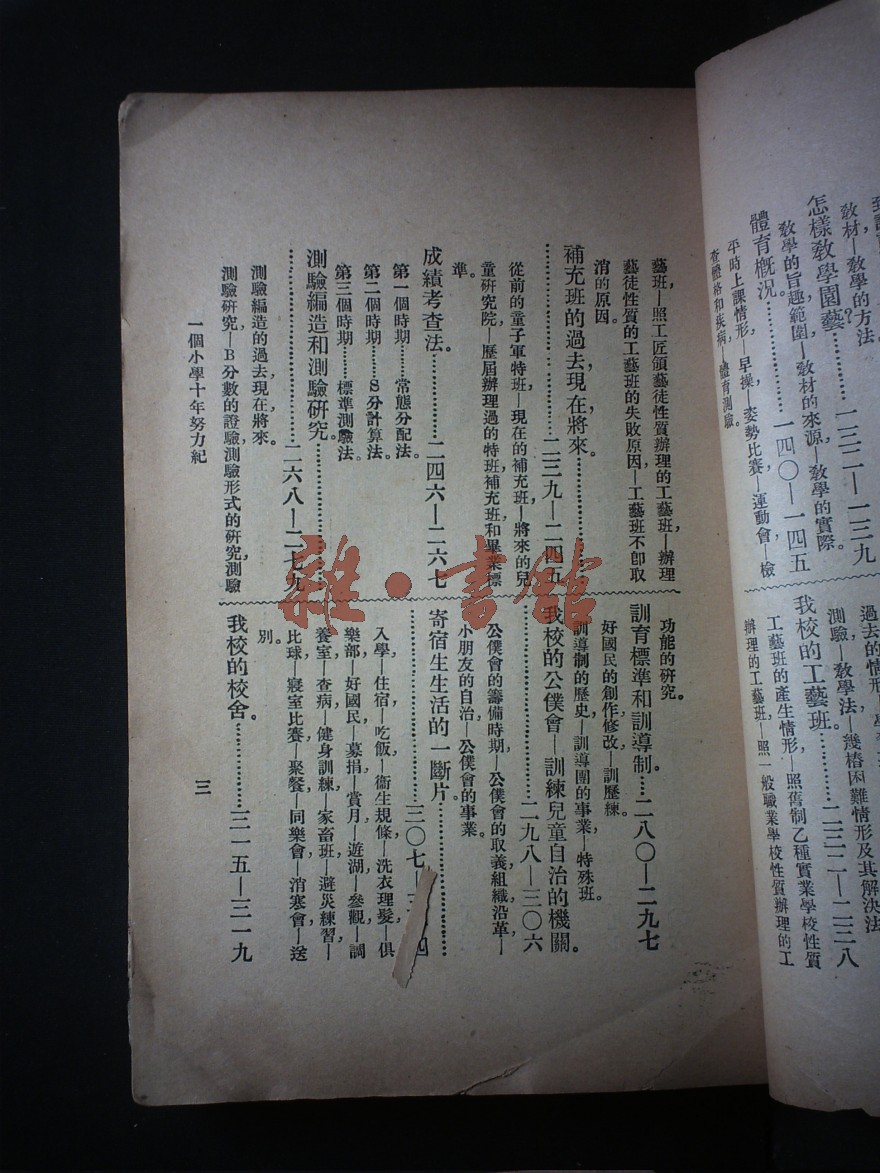 教材—教學的方法。
怎樣教學園藝？……一三二—一三九
教學的旨趣範圍—教材的來源—教學的實際。
體育概況……一四〇—一四五
平時上課情形—早操—姿勢比賽—運動會—檢
查體格和疾病—體育測驗。
測驗—教學法—幾樁困難情形及其解決法
我校的工藝班……二三二—二三八
工藝班的產生情形—照舊制乙種實業學校性質
辦理的工藝班—照一般職業學校性質辦理的工
藝班—照工匠領藝徒性質辦理的工藝班—辦理
藝徒性質的工藝班的失敗原因—工藝班不卽取
消的原因。
補充班的過去，現在，將來。……二三九—二四五
從前的童子軍特班—現在的補充班—將來的兒
童研究院—歷屆辦理過的特班補充班和畢業標
準。
成績考查法。……二四六—二六七
第一個時期……常態分配法。
第二個時期……S分計算法。
第三個時期……標準測驗法。
測驗編造和測驗研究。
……二六八—二七九
測驗編造的過去，現在，將來。
測驗研究—B分數的證驗，測驗形式的研究，測驗
功能的研究。
訓育標準和訓導制。……二八〇—二九七
好國民的創作，修改—訓歷練。
訓導制的歷史—訓導團的事業—特殊班。
我校的公僕會—訓練兒童自治的機關。
……二九八—三〇六
公僕會的籌備時期—公僕會的取義，組織，沿革—
小朋友的自治—公僕會的事業。
寄宿生生活的一斷片。
……三〇七—三 四
入學—住宿—吃飯—衞生規條—洗衣，理髮—俱
樂部—好國民—募捐，賞月—遊湖—參觀—調
養室—查病—健身訓練—家畜班—避災練習—
比球，寢室比賽—聚餐—同樂會—消寒會—送
別。
我校的校舍。……三一五—三一九
一個小學十年努力紀
三
雜·書館